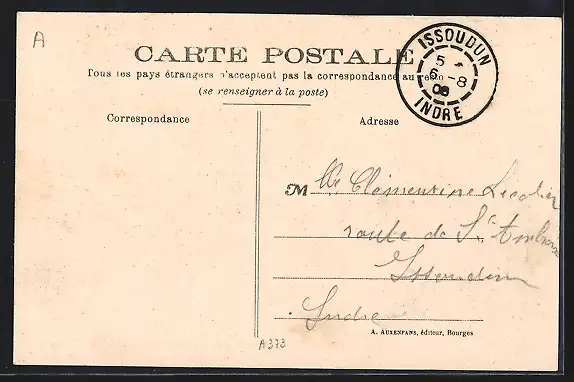 A
CARTE POSTALE
Tous les pays étrangers n'acceptent pas la correspondance au recto
(se renseigner à la poste)
ISSOUDUN
5
6-8
08
INDRE
Correspondance
Adresse
M Clémentine
route de St Ambroix
Issoudun
Indre
A. AUXENFANS, éditeur, Bourges
A373